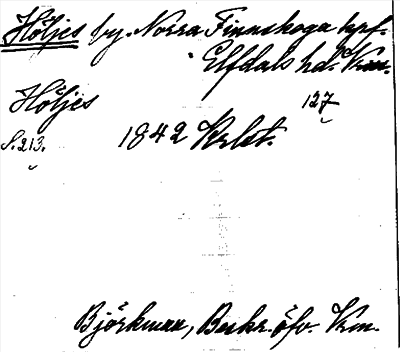 Höljes by. Norra Finnskoga kpf.
Elfdals hd. Krm.
Höljes 127
S. 213. 1842 Krlst.
Björkman, Beskr. öfv. Vrm.